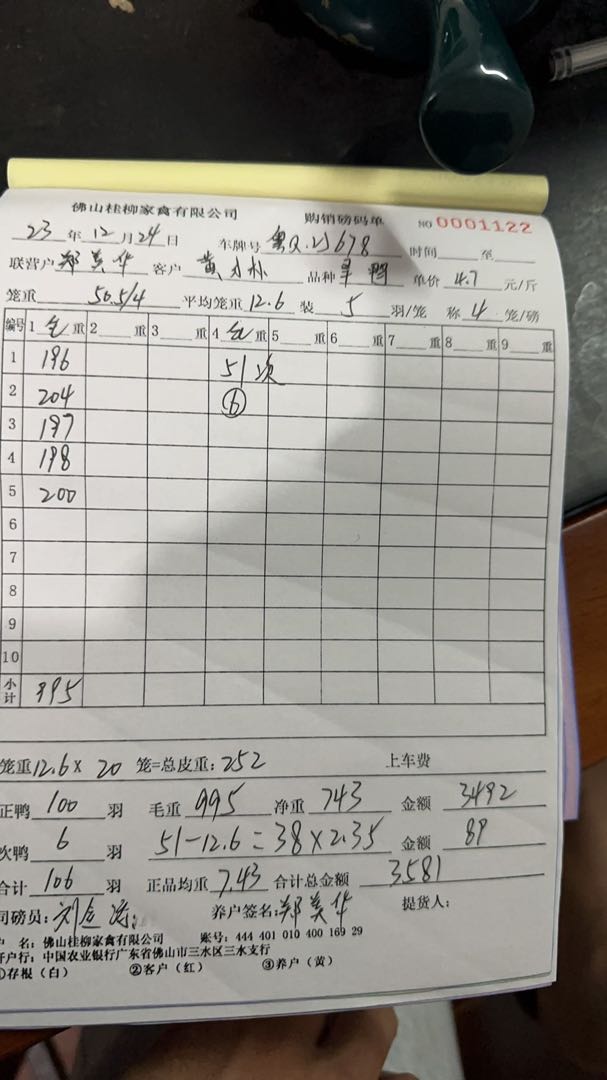 佛山桂柳家禽有限公司 购销磅码单 NO 0001122
23年12月24日 车牌号 678 时间 至
联营户 郑美华 客户 黄 林 品种 鸭 单价 4.7 元/斤
笼重 50.5/4 平均笼重 12.6 装 5 羽/笼 称 4 笼/磅
编号 1 重 2 重 3 重 4 重 5 重 6 重 7 重 8 重 9 重
1 196 51次
2 204 ⑥
3 197
4 198
5 200
6
7
8
9
10
小计 995
笼重 12.6 × 20 笼=总皮重: 252 上车费
正鸭 100 羽 毛重 995 净重 743 金额 3492
次鸭 6 羽 51-12.6=38×2.35 金额 89
合计 106 羽 正品均重 7.43 合计总金额 3581
司磅员: 刘 养户签名: 郑美华 提货人:
户 名: 佛山桂柳家禽有限公司 账号: 444 401 010 400 169 29
开户行: 中国农业银行广东省佛山市三水区三水支行
①存根(白) ②客户(红) ③养户(黄)